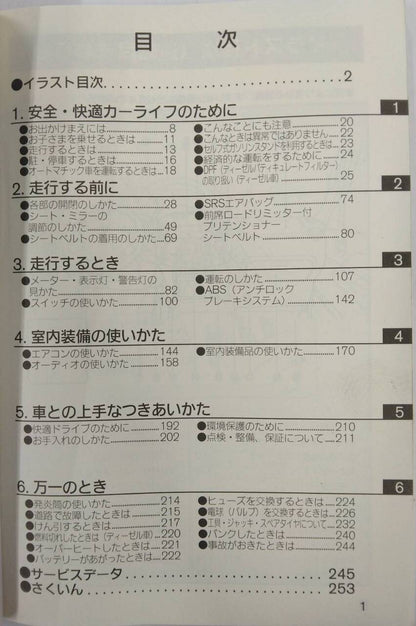 目 次
●イラスト目次 2
1. 安全・快適カーライフのために 1
●お出かけまえには 8
●お子さまを乗せるときは 11
●走行するときは 13
●駐・停車するときは 16
●オートマチック車を運転するときは 18
●こんなことにも注意 20
●こんなときは異常ではありません 22
●セルフ式ガソリンスタンドを利用するときは 23
●経済的な運転をするために 24
●DPF（ディーゼルパティキュレートフィルター）
の取り扱い（ディーゼル車） 25
2. 走行する前に 2
●各部の開閉のしかた 28
●シート・ミラーの
調節のしかた 49
●シートベルトの着用のしかた 69
●SRSエアバッグ 74
●前席ロードリミッター付
プリテンショナー
シートベルト 80
3. 走行するとき 3
●メーター・表示灯・警告灯の
見かた 82
●スイッチの使いかた 100
●運転のしかた 107
●ABS（アンチロック
ブレーキシステム） 142
4. 室内装備の使いかた 4
●エアコンの使いかた 144
●オーディオの使いかた 158
●室内装備品の使いかた 170
5. 車との上手なつきあいかた 5
●快適ドライブのために 192
●お手入れのしかた 202
●環境保護のために 210
●点検・整備、保証について 211
6. 万一のとき 6
●発炎筒の使いかた 214
●道路で故障したときは 215
●けん引するときは 217
●燃料切れしたときは（ディーゼル車） 220
●オーバーヒートしたときは 221
●バッテリーがあがったときは 222
●ヒューズを交換するときは 224
●電球（バルブ）を交換するときは 226
●工具・ジャッキ・スペアタイヤについて 232
●パンクしたときは 240
●事故がおきたときは 244
●サービスデータ 245
●さくいん 253
1